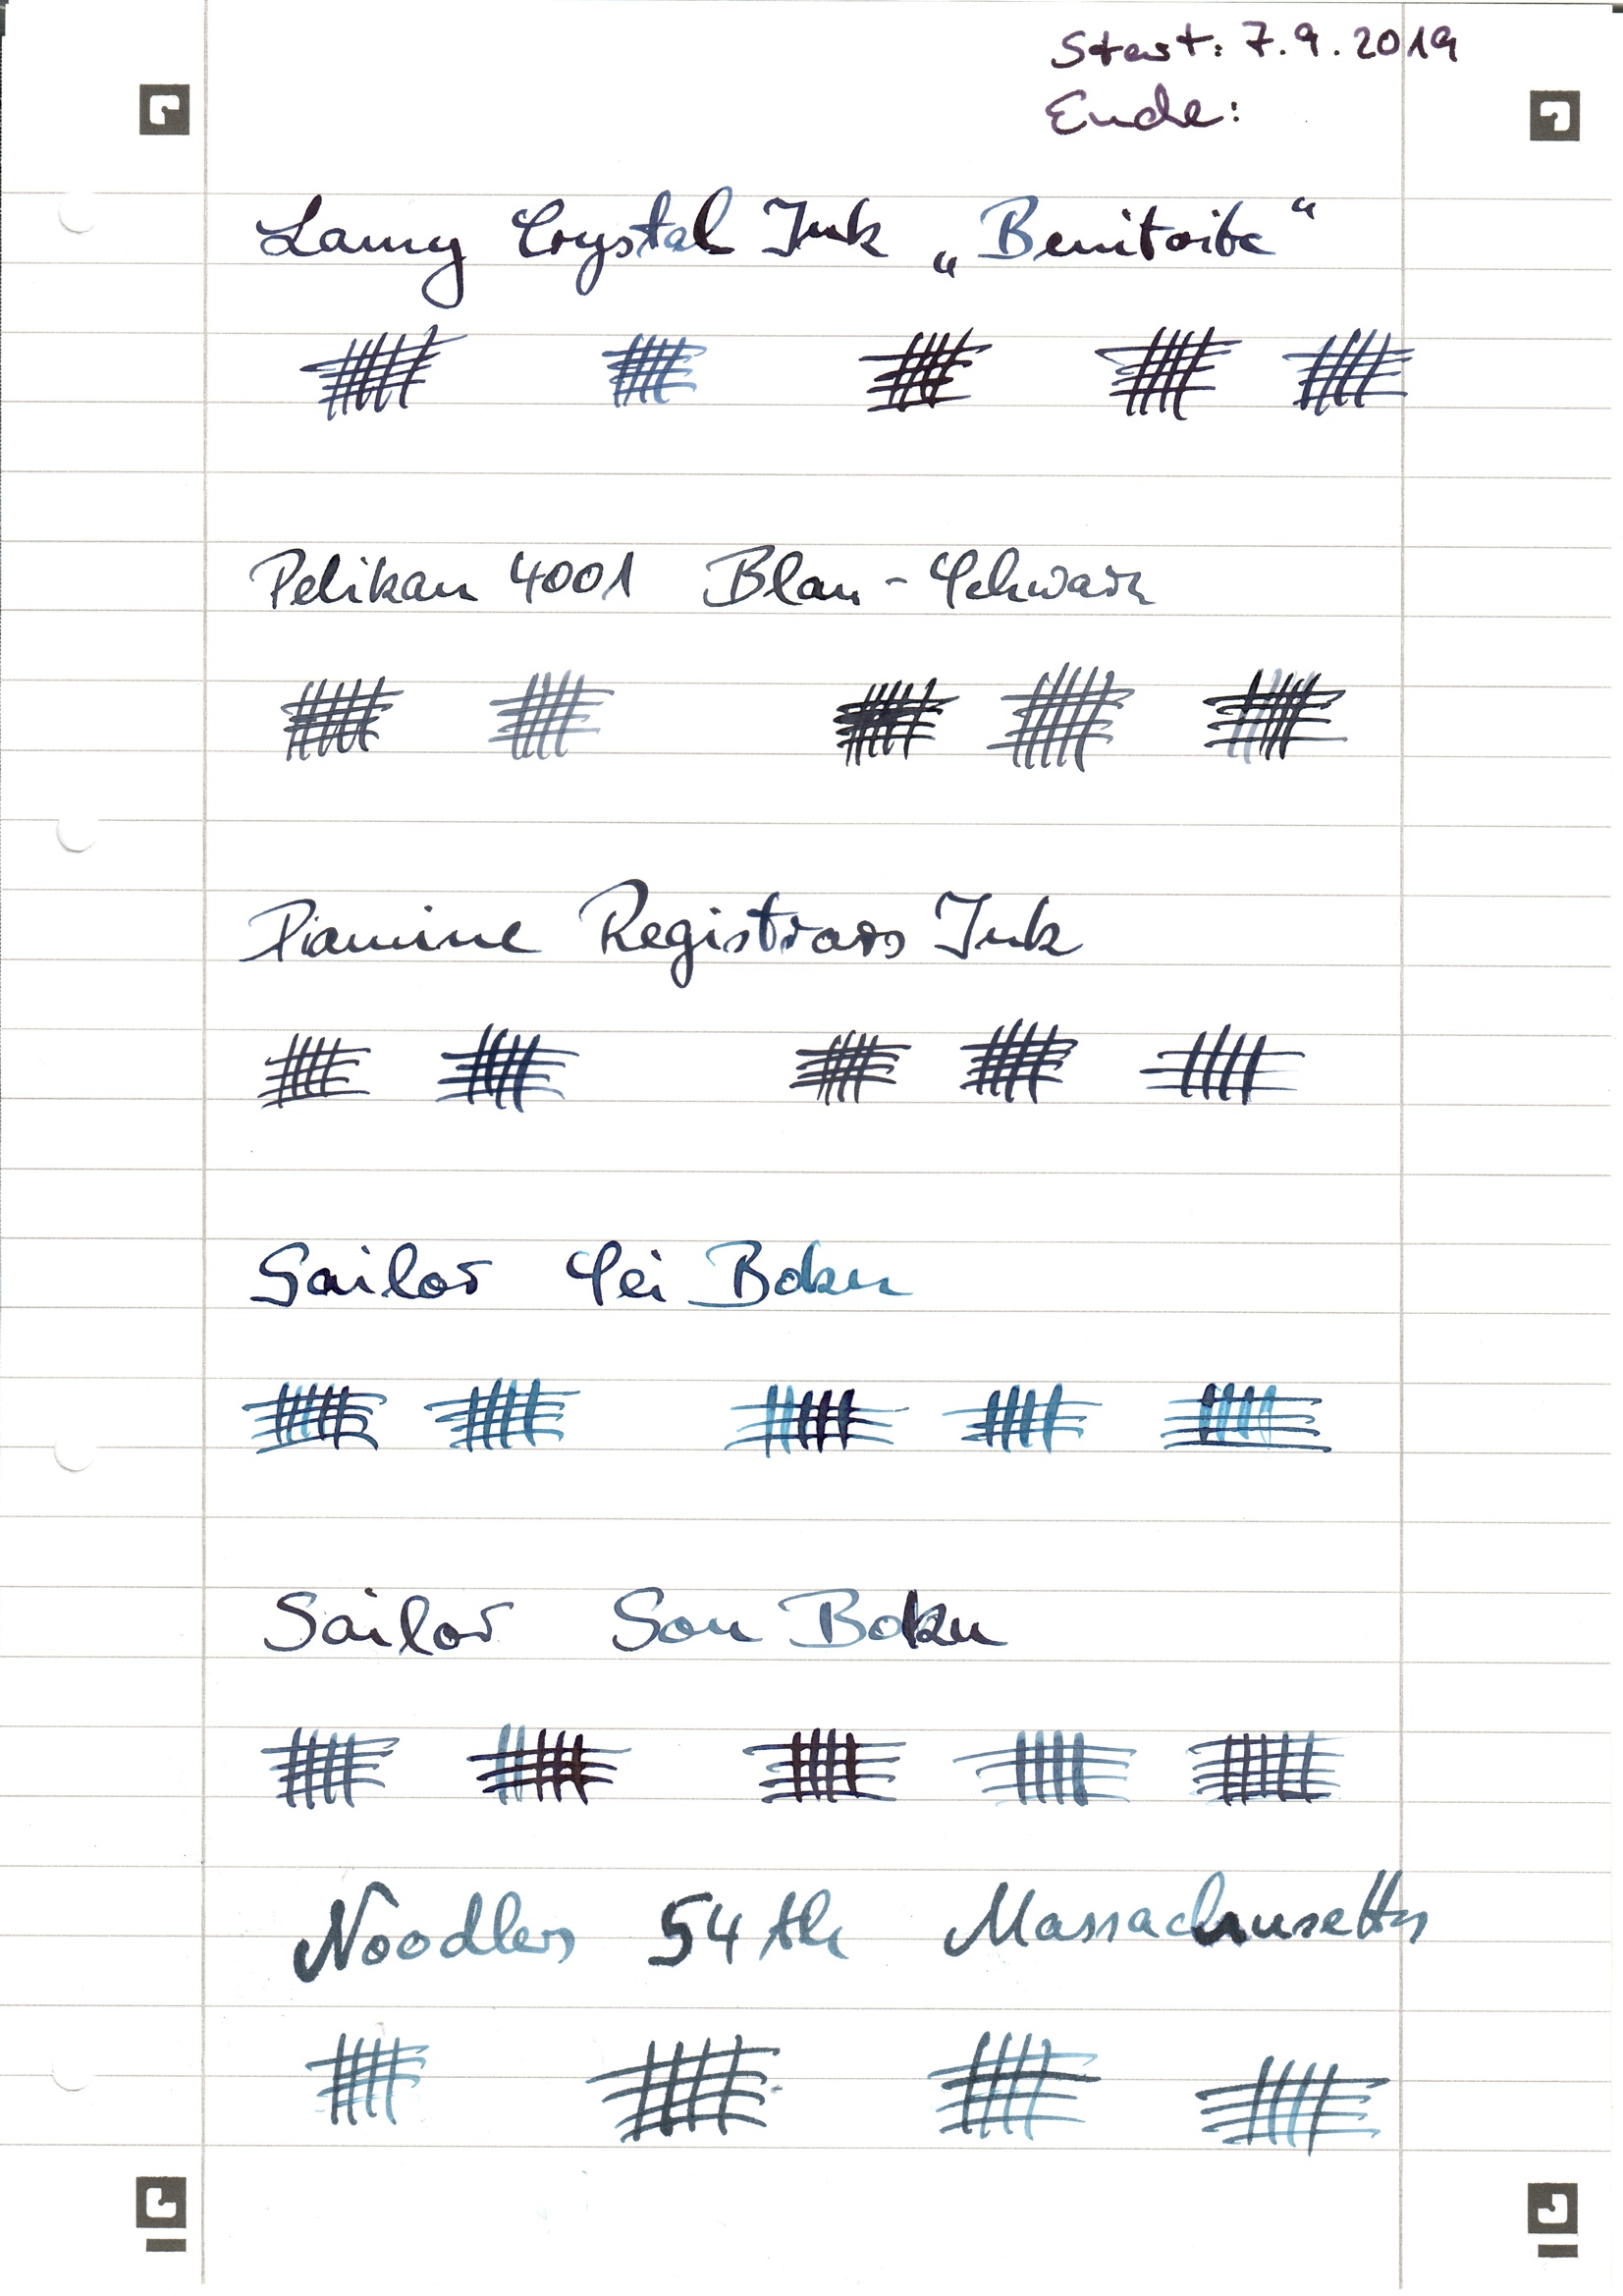 Start: 7.9.2019
Ende:
Lamy Crystal Ink „Benitoite“
Pelikan 4001 Blau-Schwarz
Diamine Registrars Ink
Sailor Sei Boku
Sailor Sou Boku
Noodlers 54th Massachusetts